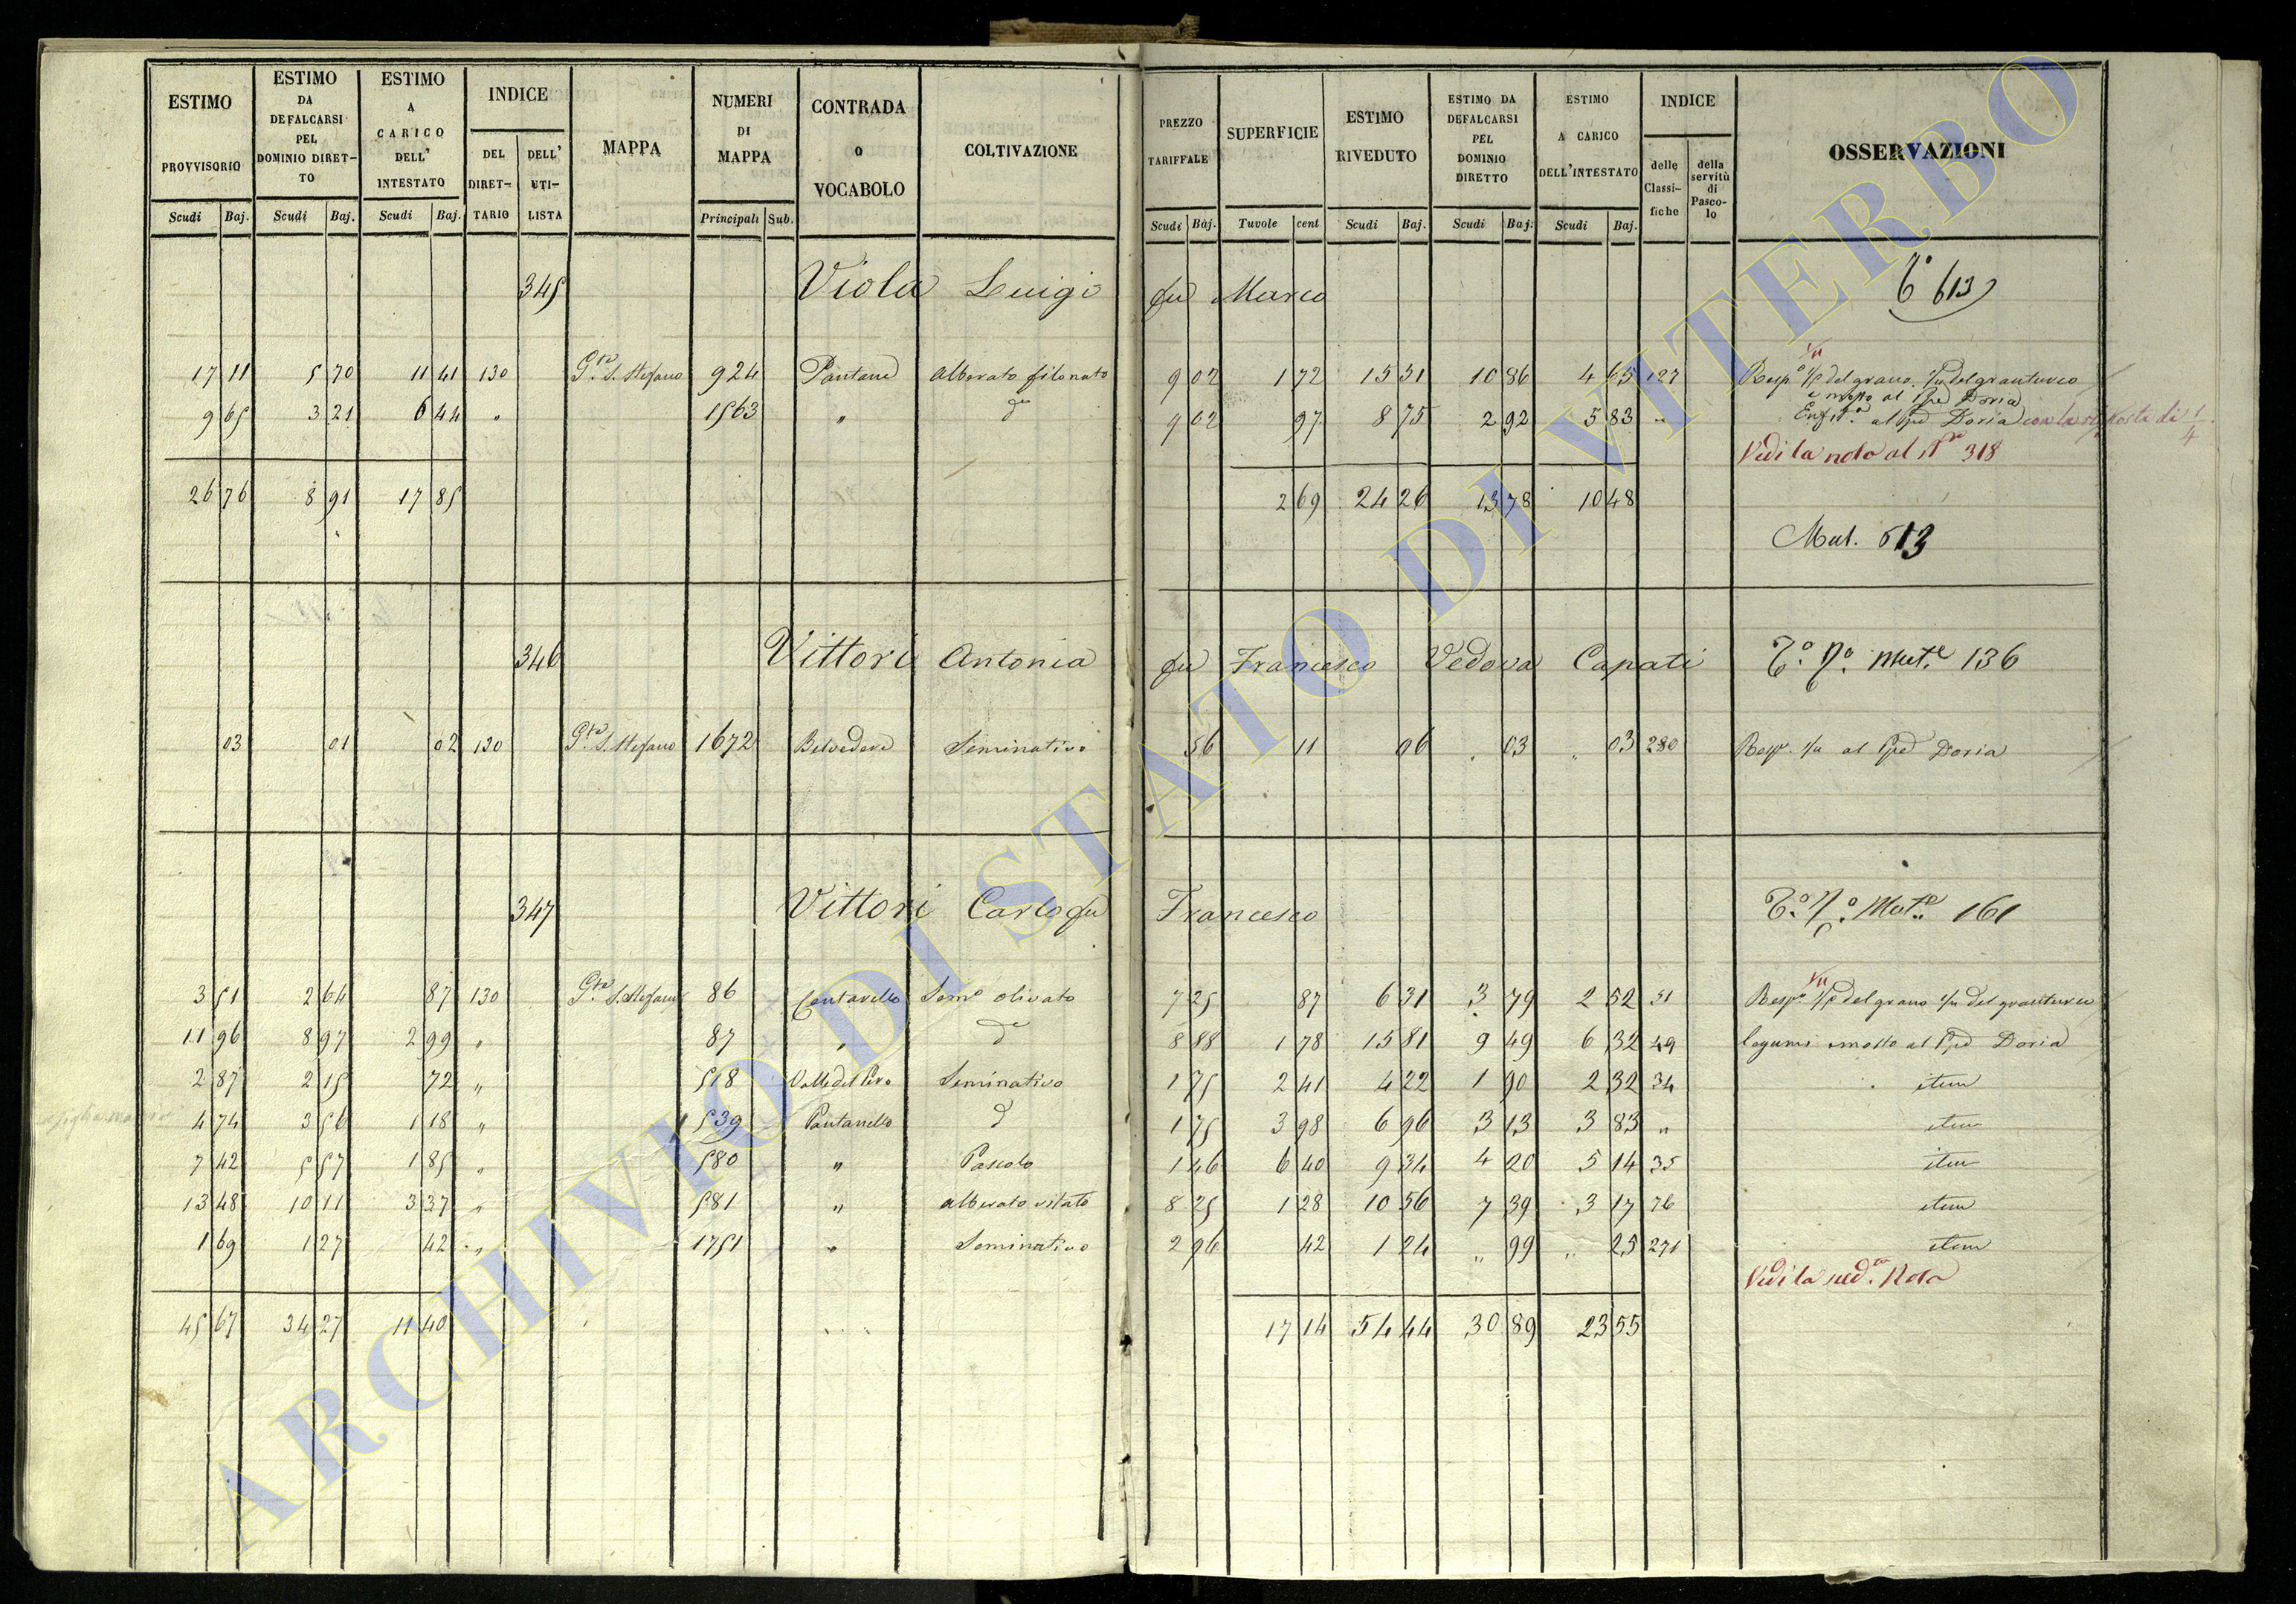 ESTIMO PROVVISORIO | ESTIMO DA DEFALCARSI PEL DOMINIO DIRETTO | ESTIMO A CARICO DELL' INTESTATO | INDICE | MAPPA | NUMERI DI MAPPA | CONTRADA O VOCABOLO | COLTIVAZIONE | PREZZO TARIFFALE | SUPERFICIE | ESTIMO RIVEDUTO | ESTIMO DA DEFALCARSI PEL DOMINIO DIRETTO | ESTIMO A CARICO DELL'INTESTATO | INDICE | OSSERVAZIONI
DEL DIRETTARIO | DELL' UTILISTA | delle Classifiche | della servitù di Pascolo
Scudi | Baj. | Scudi | Baj. | Scudi | Baj. | Principali | Sub. | Scudi | Baj. | Tavole | cent | Scudi | Baj. | Scudi | Baj. | Scudi | Baj.
345 Viola Luigi fu Marco 613
17 11 | 5 70 | 11 41 | 130 | S. Stefano | 924 | Pantane | alberato filonato | 9 02 | 1 72 | 15 31 | 10 86 | 4 45 | 127 | del grano del granturco
e mosto al Ppe Doria
9 65 | 3 21 | 6 44 | " | 1563 | " | do | 9 02 | 97 | 8 75 | 2 92 | 5 83 | " | al Ppe Doria con la risposta di 1/4
Vedi la nota al No 318
26 76 | 8 91 | 17 85 | 2 69 | 24 26 | 13 78 | 10 48
Mut. 613
346 Vittori Antonia fu Francesco Vedova Capati Mut.e 136
03 | 01 | 02 | 130 | S. Stefano | 1672 | Belvedere | Seminativo | 56 | 11 | 06 | " 03 | " 03 | 280 | Resp. al Ppe Doria
347 Vittori Carlo fu Francesco Mut.e 161
3 51 | 2 64 | 87 | 130 | S. Stefano | 86 | Centarello | Semo olivato | 7 25 | 87 | 6 31 | 3 79 | 2 52 | 51 | del grano del granturco
11 96 | 8 97 | 2 99 | " | 87 | " | do | 8 88 | 1 78 | 15 81 | 9 49 | 6 32 | 49 | legumi e mosto al Ppe Doria
2 87 | 2 15 | 72 | " | 518 | Valle del Pero | Seminativo | 1 75 | 2 41 | 4 22 | 1 90 | 2 32 | 34 | item
4 74 | 3 56 | 1 18 | " | 539 | Pantanello | do | 1 75 | 3 98 | 6 96 | 3 13 | 3 83 | " | item
7 42 | 5 57 | 1 85 | " | 580 | " | Pascolo | 1 46 | 6 40 | 9 34 | 4 20 | 5 14 | 35 | item
13 48 | 10 11 | 3 37 | " | 581 | " | alberato vitato | 8 25 | 1 28 | 10 56 | 7 39 | 3 17 | 76 | item
1 69 | 1 27 | 42 | " | 1751 | " | Seminativo | 2 96 | 42 | 1 24 | " 99 | " 25 | 271 | item
Vedi la sud.ta Nota
45 67 | 34 27 | 11 40 | 17 14 | 54 44 | 30 89 | 23 55
ARCHIVIO DI STATO DI VITERBO